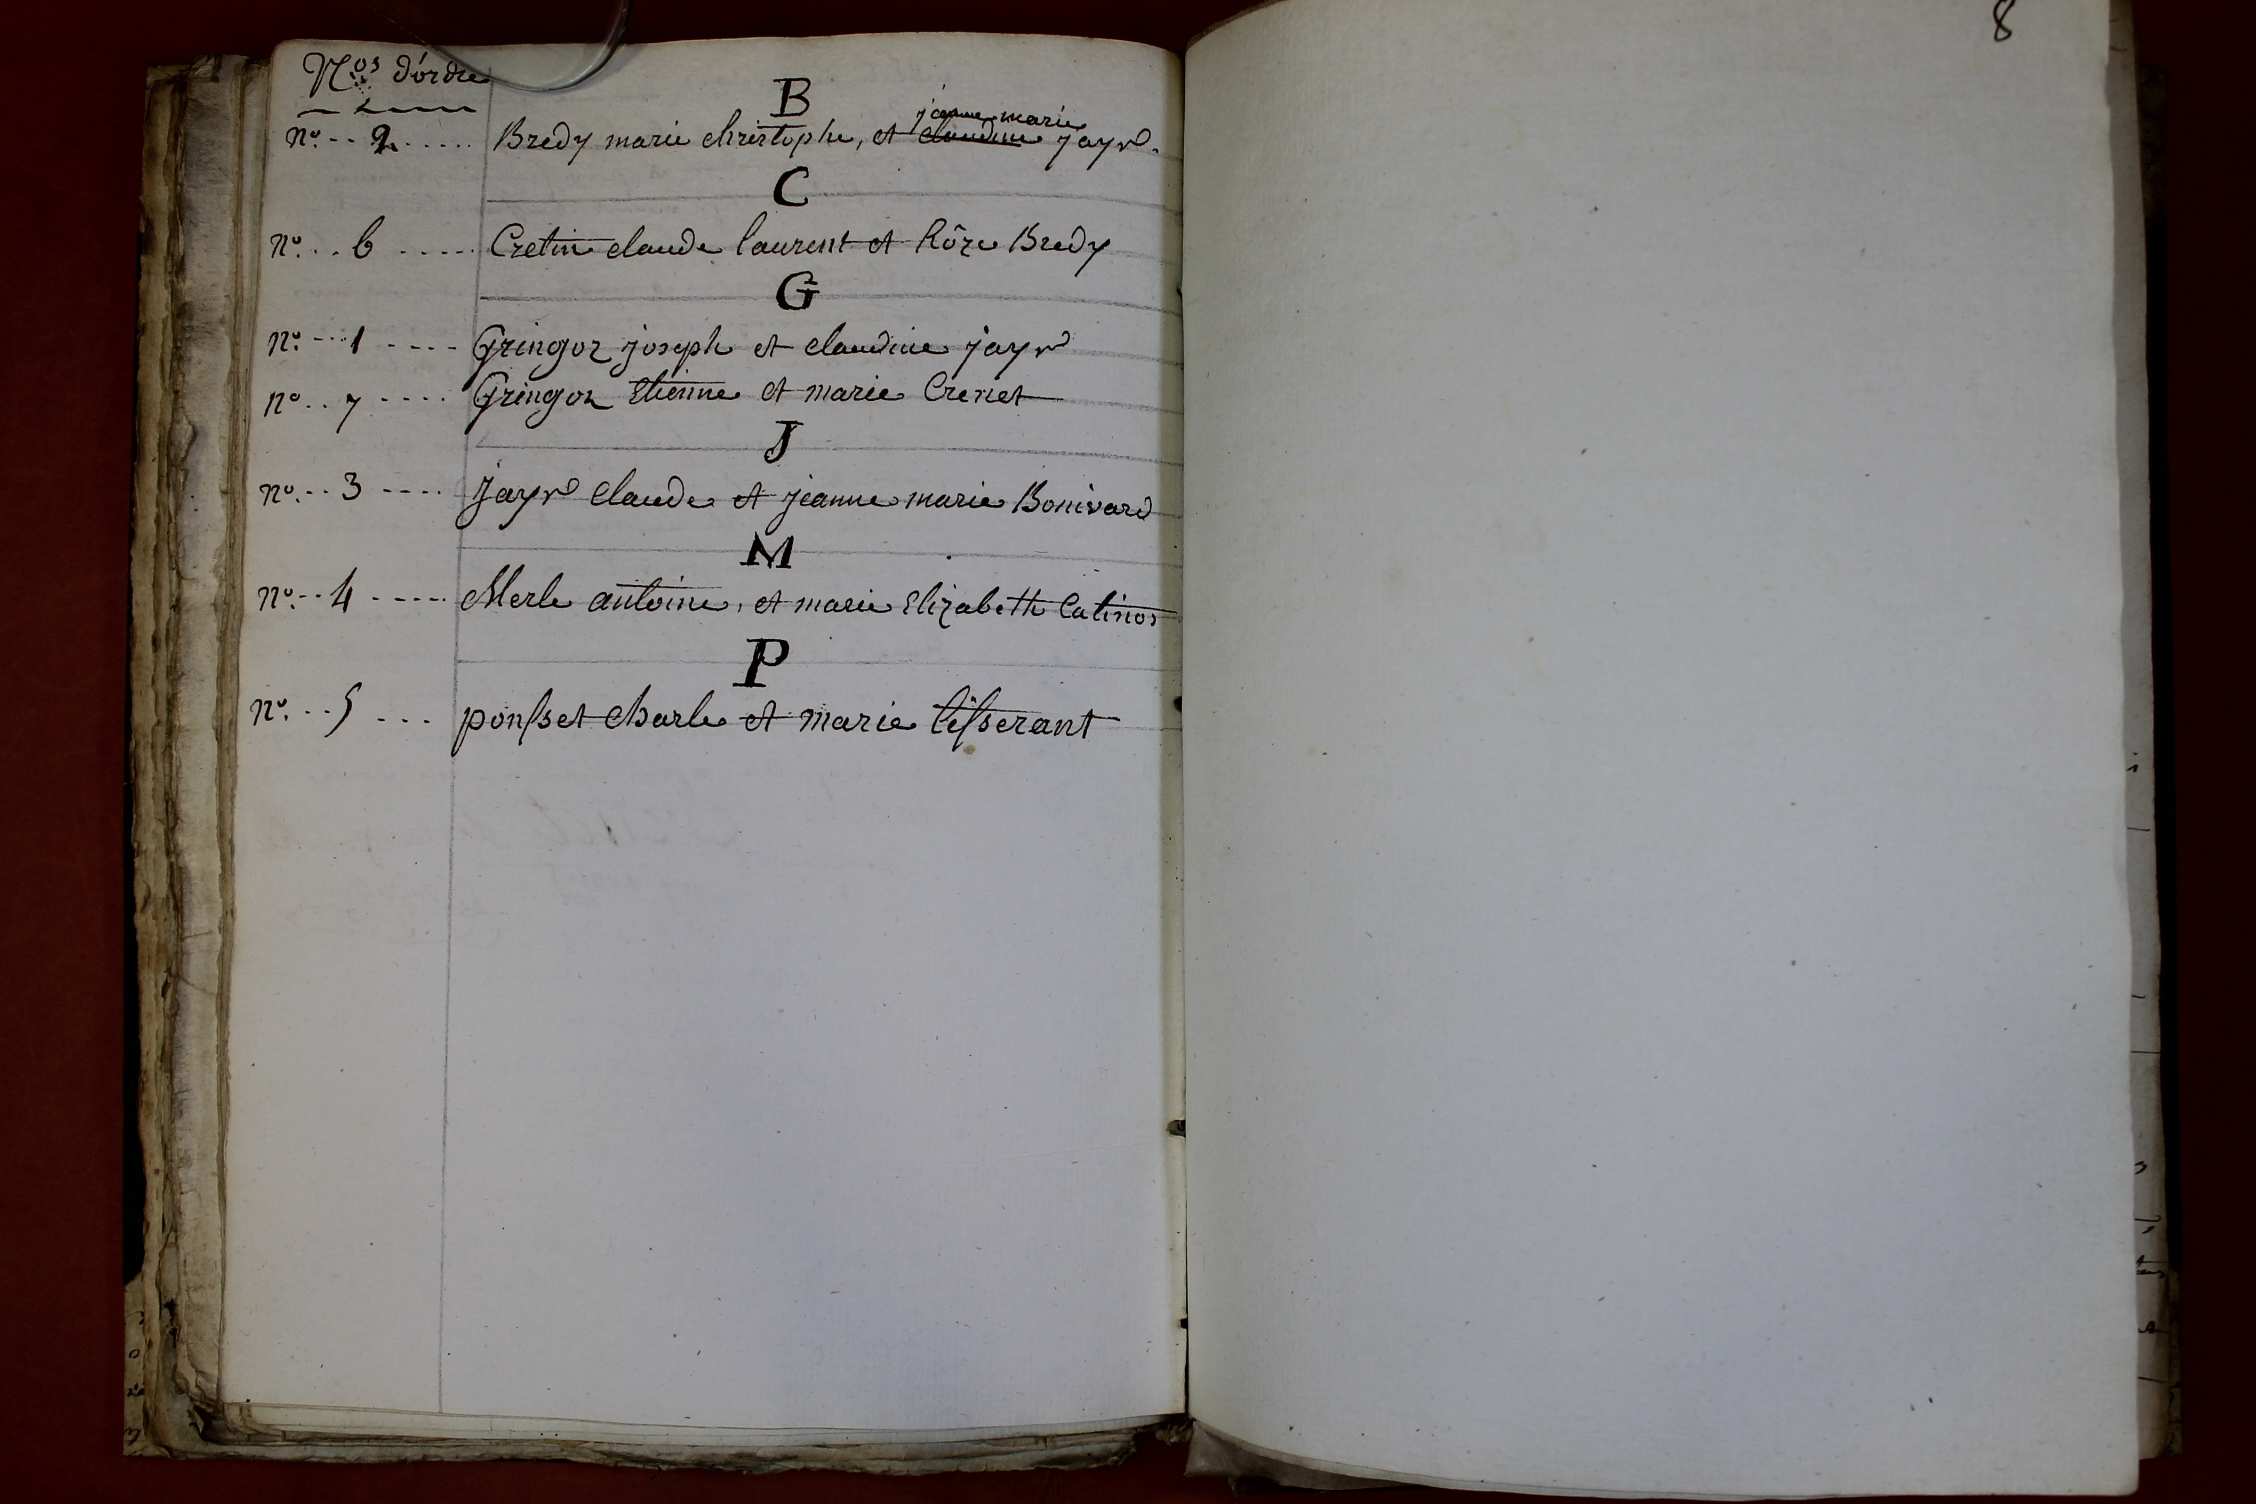 8
N.os d'ordre
B
jeanne marie
n.o -- 2 ..... Bredy marie christophe, et claudine jayr.
C
n.o .. 6 ..... Cretin claude laurent et Rôze Bredy
G
n.o --- 1 ---- Gringoz joseph et claudine jayr
n.o .. 7 .... Gringoz Etienne et marie Crenet
J
n.o. -- 3 ---- jayr claude et jeanne marie Bonivard
M
n.o. -- 4 ----- Merle antoine, et marie Elizabeth Catinos
P
n.o. .. 5 ... ponsset charle et marie tisserant